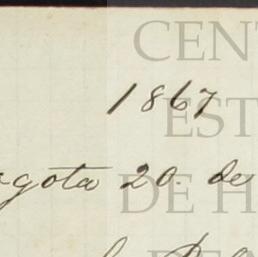 CENT
1867
EST
gota 20. de
DE H